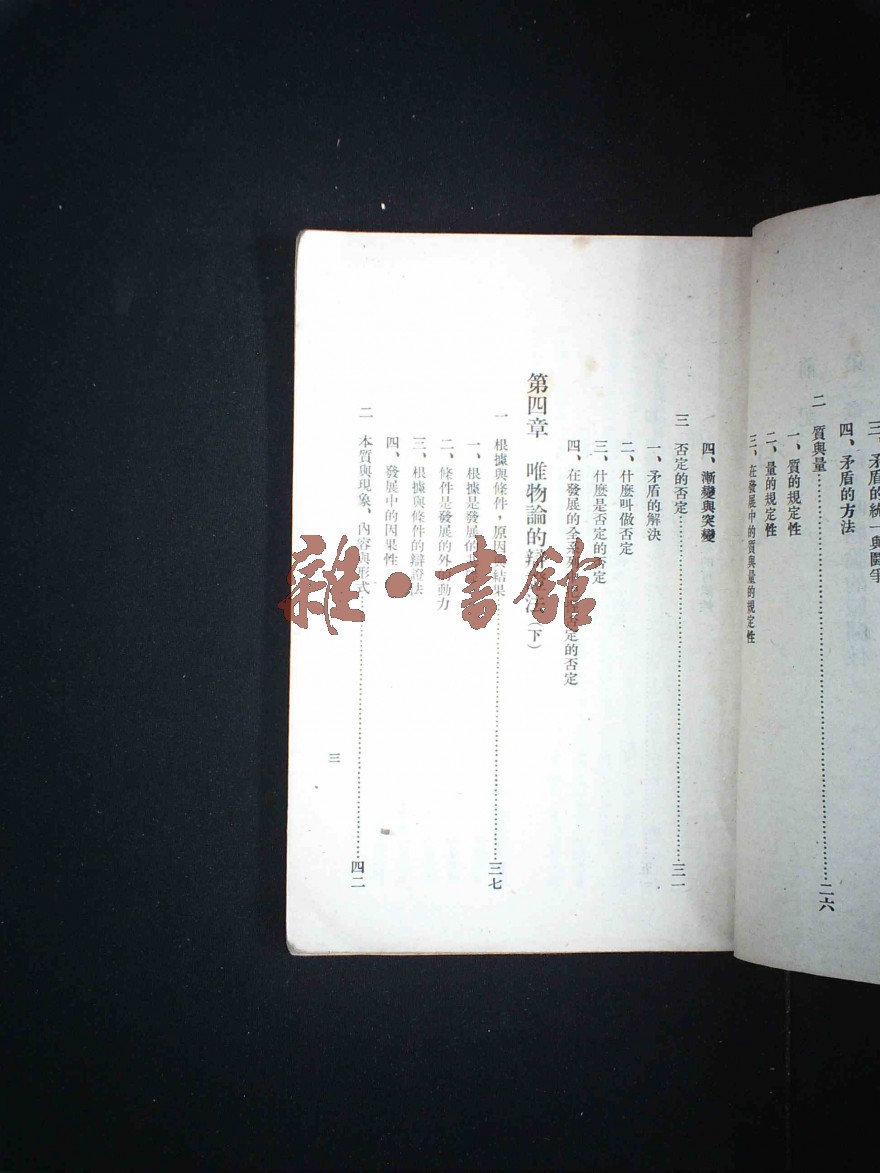 三、矛盾的統一與鬪爭
四、矛盾的方法
二 質與量……二六
一、質的規定性
二、量的規定性
三、在發展中的質與量的規定性
四、漸變與突變
三 否定的否定……三一
一、矛盾的解決
二、什麼叫做否定
三、什麼是否定的否定
四、在發展的全 否定的否定
第四章 唯物論的辯證法（下）
一 根據與條件，原因與結果……三七
一、根據是發展的
二、條件是發展的外 動力
三、根據與條件的辯證法
四、發展中的因果性
二 本質與現象、內容與形式……四二
三
雜·書館